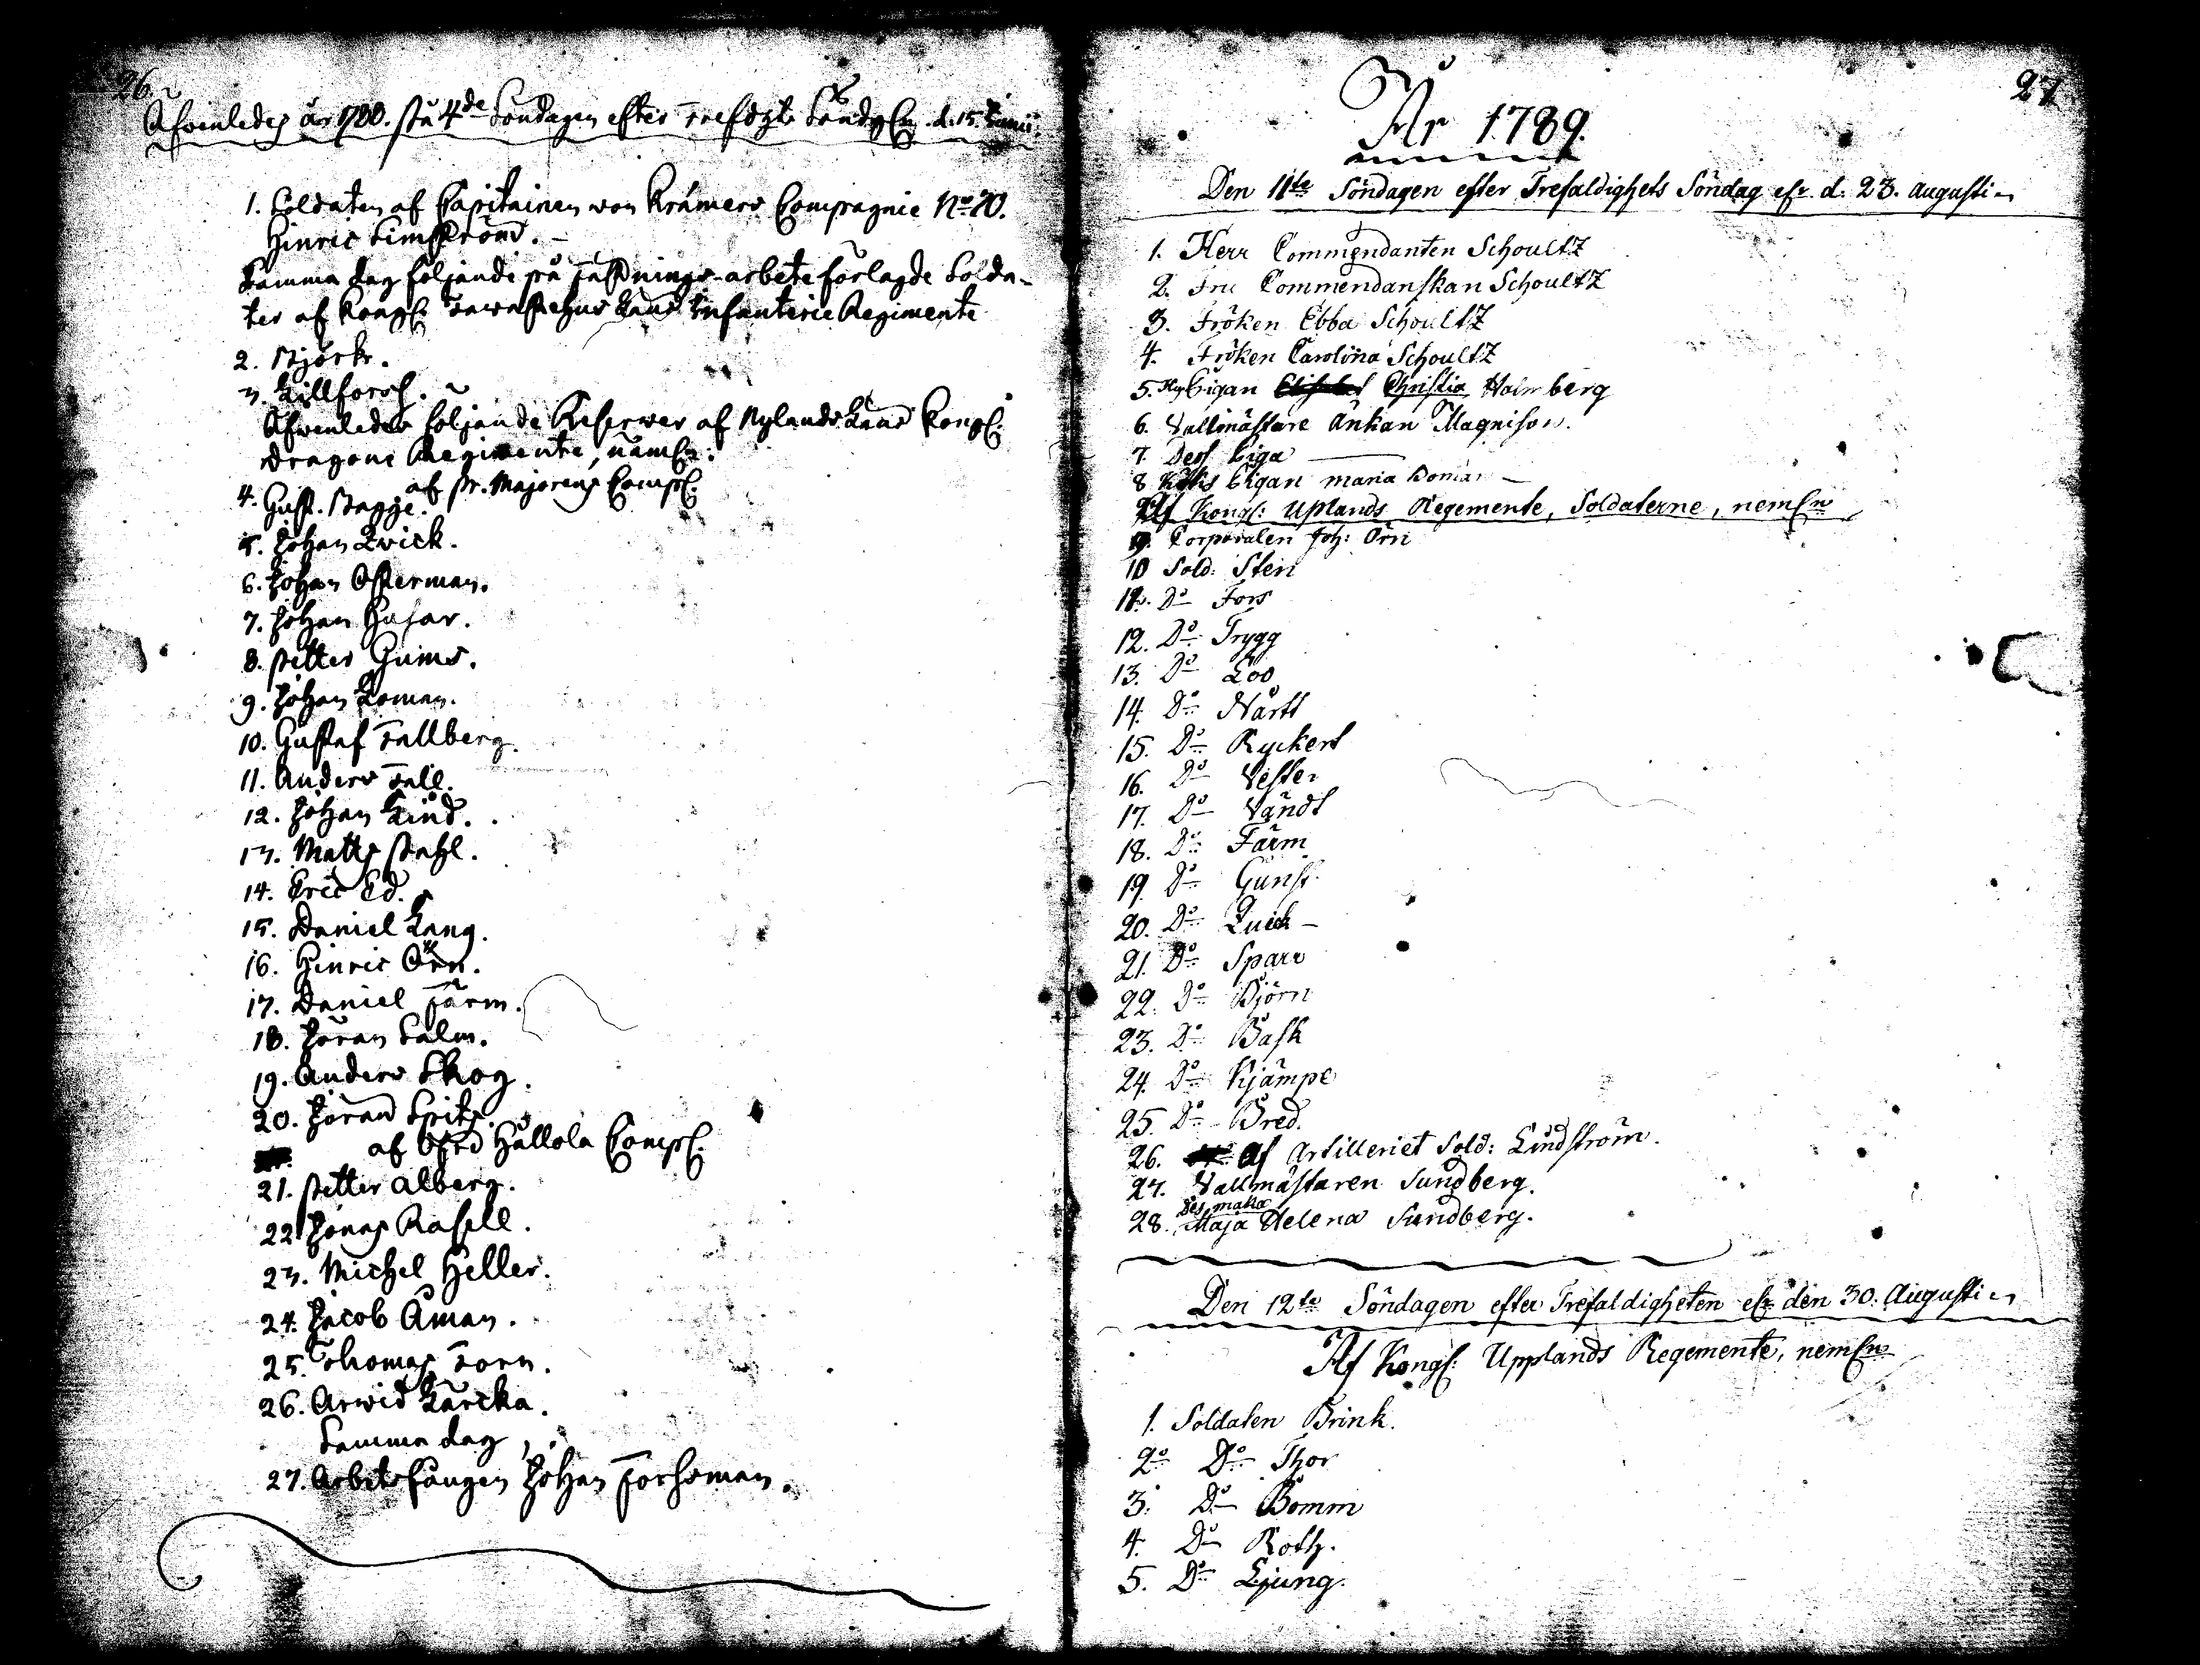 26.
Äfwenledes år 1788. på 4de Söndagen efter Trefdgts Söndg. d. 15. Junii.
1. Soldaten af Capitainen von Krämers Compagnie No 70.
Hinric Limström.
Samma dag följande på fästnings-arbete förlagde Solda-
ter af Kongl: Tawastehus Läns Infanterie Regimente
2. Björk.
3. Killfors.
Äfwenledes följande Reserver af Nylands Läns Kongl:
Dragone Regimente, näml.
af Hr. Majorens Comp:
4. Gust. Bagge.
5. Johan Qvick.
6. Johan Osterman.
7. Johan Husar.
8. Petter Hums.
9. Johan Loman.
10. Gustaf Fallberg.
11. Anders Fall.
12. Johan Lind.
13. Matts Stahl.
14. Eric Ed.
15. Daniel Lang.
16. Hinric Örn.
17. Daniel Färm.
18. Jöran Salm.
19. Anders Skog.
20. Jöran Spits.
af Hållola Comp:
21. Petter Alberg.
22. Jonas Rasell.
23. Michel Heller.
24. Jacob Åman.
25. Thomas Torn.
26. Arwid Kärcka.
Samma dag,
27. Arbetsfången Johan Forssman.
27
År 1789.
Den 11te Söndagen efter Trefaldighets Söndag d. 23. Augusti
1. Herr Commendanten Schoultz
2. Fru Commendanskan Schoultz
3. Fröken Ebba Schoultz
4. Fröken Carolina Schoultz
5. Pigan Christin Holmberg
6. Vallmästare Änkan Magnison.
7. Dess Piga
8. Pigan Maria
Af Kongl: Uplands Regemente, Soldaterne, neml:
9. Corporalen Joh: Örn
10 Sold: Sten
11. Do Fors
12. Do Trygg
13. Do Loo
14. Do Nårtt
15. Do Ryckert
16. Do Vester
17. Do Vändt
18. Do Färm
19. Do Gunst
20. Do Quick
21. Do Sparr
22. Do Björn
23. Do Bask
24. Do Kjämpe
25. Do Bred.
26. Af Artilleriet Sold: Lindström.
27. Vallmästaren Sundberg.
Des maka
28. Maja Helena Sundberg.
Den 12te Söndagen efter Trefaldigheten den 30. Augusti
Af Kongl: Upplands Regemente, neml:
1. Soldaten Brink.
2. Do Thor
3. Do Bomm
4. Do Roth.
5. Do Ljung.